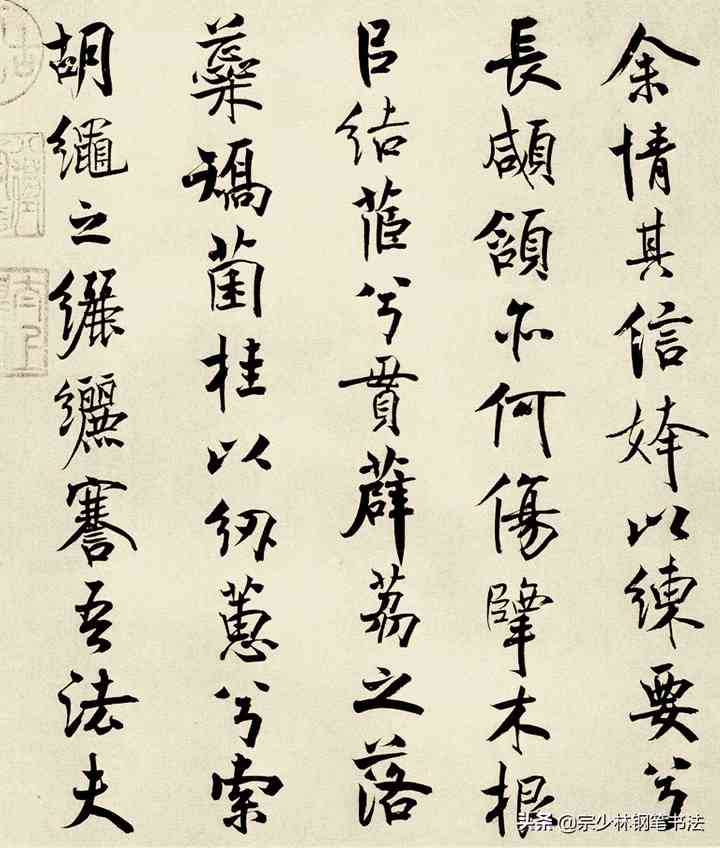 余情其信姱以練要兮
長顑頷亦何傷擥木根
㠯結茝兮貫薜荔之落
蘂矯菌桂以紉蕙兮索
胡繩之纚纚謇吾法夫
头条 @宗少林钢笔书法